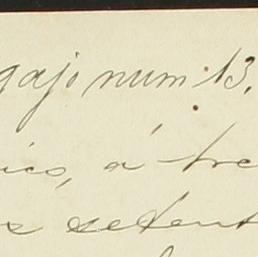 gajo num. 13.
ico, á tre
s setent